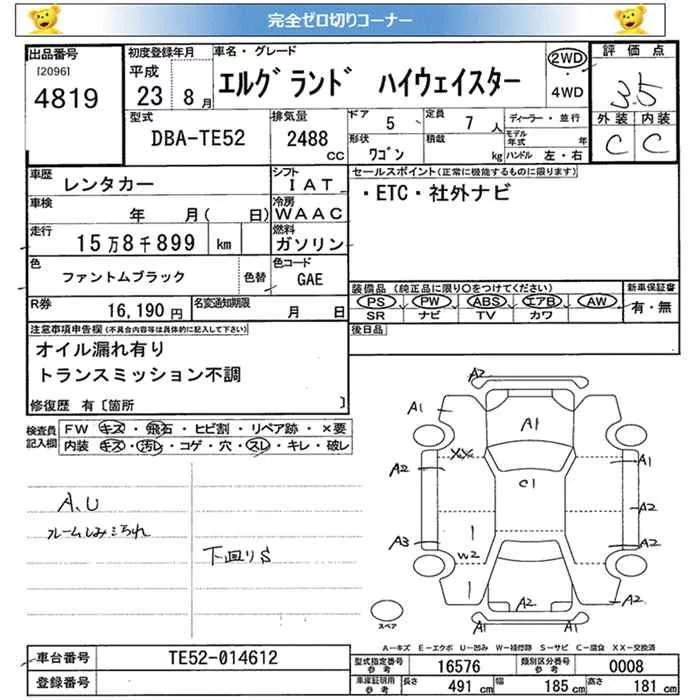 完全ゼロ切りコーナー
出品番号
[2096]
4819
初度登録年月
平成
23 8月
車名・グレード
エルグランド ハイウェイスター
2WD
・
4WD
評価点
3.5
外装 内装
C C
型式
DBA-TE52
排気量
2488
CC
ドア
5
定員
7人
形状
ワゴン
積載
kg
ディーラー・並行
モデル年式 年
ハンドル 左・右
車歴
レンタカー
シフト
IAT
セールスポイント(正常に機能するものに限ります)
・ETC・社外ナビ
車検
年 月( 日)
冷房
WAAC
走行
15万8千899 km
燃料
ガソリン
色
ファントムブラック
色替
色コード
GAE
装備品 (純正品に限り○をつけてください)
PS PW ABS エアB AW
SR ナビ TV カワ
新車保証書
有・無
R券
16,190円
名変通知期限
月 日
後日品
注意事項申告欄(不具合内容等は具体的に記入して下さい)
オイル漏れ有り
トランスミッション不調
修復歴 有〔箇所 〕
検査員
記入欄
FW キズ・飛石・ヒビ割・リペア跡・×要
内装 キズ・汚レ・コゲ・穴・スレ・キレ・破レ
A.U
下回りS
A2
A1
A1
XX
A2
C1
A1
A2
A3
W2
1
A2
1
A2
A2
A2
スペア
A-キズ E-エクボ U-凹み W-補修跡 S-サビ C-腐食 XX-交換済
車台番号
TE52-014612
登録番号
型式指定番号
参考
16576
類別区分番号
参考
0008
車庫証明用
参考
長さ
491 cm
幅
185 cm
高さ
181 cm